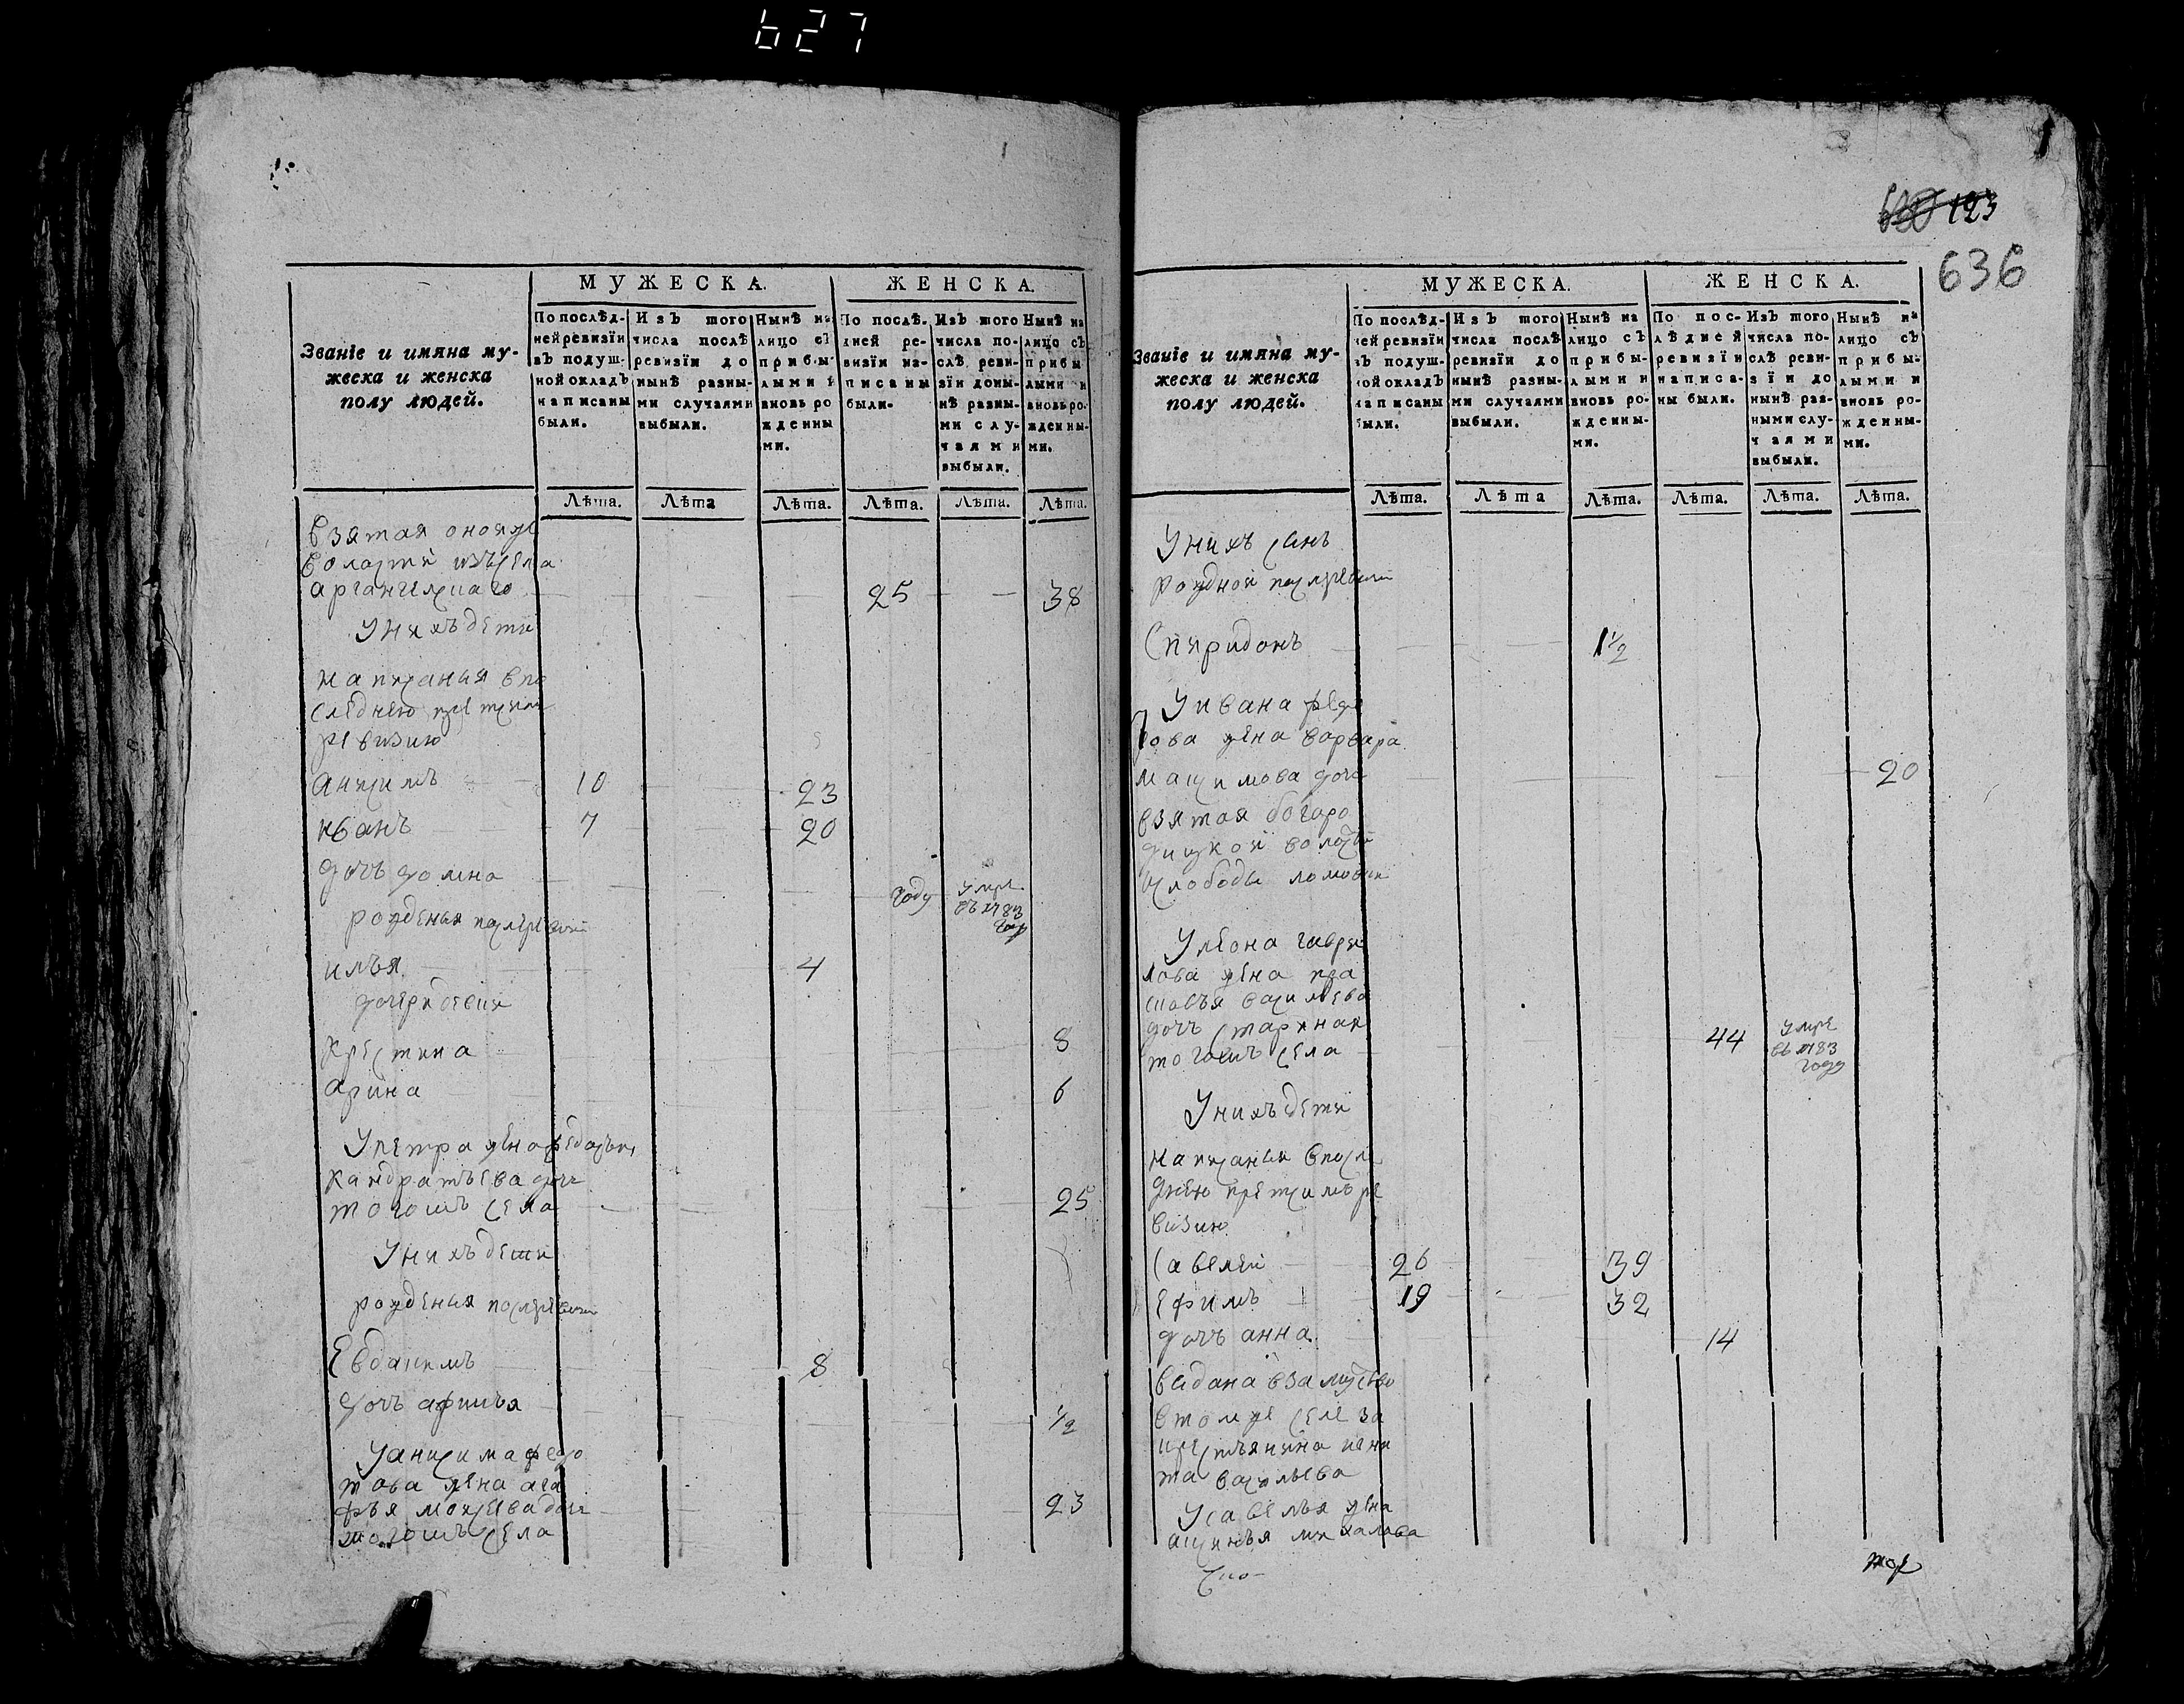 627
МУЖЕСКА. ЖЕНСКА.
Званіе и имяна му-
жеска и женска
полу людей.
По послѣд-
ней ревизіи
въ подуш-
ной окладъ
написаны
были.
Изъ того
числа послѣ
ревизіи до
нынѣ разны-
ми случаями
выбыли.
Нынѣ на
лицо съ
прибы-
лыми и
вновь ро
жденны
ми.
По послѣ-
дней ре-
визіи на-
писаны
были.
Изъ того
числа по-
слѣ реви-
зіи доны-
нѣ разны-
ми слу-
чаями
выбыли.
Нынѣ на
лицо съ
прибы
лыми и
вновь ро-
жденны-
ми.
Лѣта. Лѣта Лѣта. Лѣта. Лѣта. Лѣта.
взятая оной же
воласти изъ села
арганъгилскаго 25 38
У них детеи
написаныя впо
следнею пре
ревизию
анисимъ 10 23
иванъ 7 20
дочь домна году умре
въ 1783
году
рожденыя после ревизии
илья 4
дочери девки
крестина 8
арина 6
У петра жена федосья
кандратьева дочь
тогошъ села 25
У нихъ дети
рожденыя после ревизии
Евдакимъ 8
дочь афимья 1/2
У анисима федо
това жена ага
фья мокеева дочь 23
тогошъ села
123
636
МУЖЕСКА. ЖЕНСКА.
Званіе и имяна му-
жеска и женска
полу людей.
По послѣд-
ней ревизіи
въ подуш-
ной окладъ
написаны
были.
Изъ того
числа послѣ
ревизіи до
нынѣ разны-
ми случаями
выбыли.
Нынѣ на
лицо съ
прибы-
лыми и
вновь ро-
жденны-
ми.
По пос-
лѣдней
ревизіи
написа-
ны были.
Изъ того
числа по-
слѣ реви-
зіи до
нынѣ раз-
ными слу-
чаями
выбыли.
Нынѣ на
лицо съ
прибы-
лыми и
вновь ро-
жденны-
ми.
Лѣта. Лѣта Лѣта. Лѣта. Лѣта. Лѣта.
У нихъ сынъ
рожденой после ревизии
Спиридонъ 1 1/2
У ивана федо
това жена варвара
максимова дочь 20
взятая богоро
дицкой воласти
слободы
У леона гаври
лова жена пра
сковья васильева
дочь стариная 44 умре
въ 1783
году
тогошъ села
У нихъ дети
написаныя в после
днею ре
визию
Савелеи 26 39
Ефимъ 19 32
дочь анна 14
выдана взамужство
в томже селе за
крестьянина ники
та васильева
У савелья жена
аксинья михалова